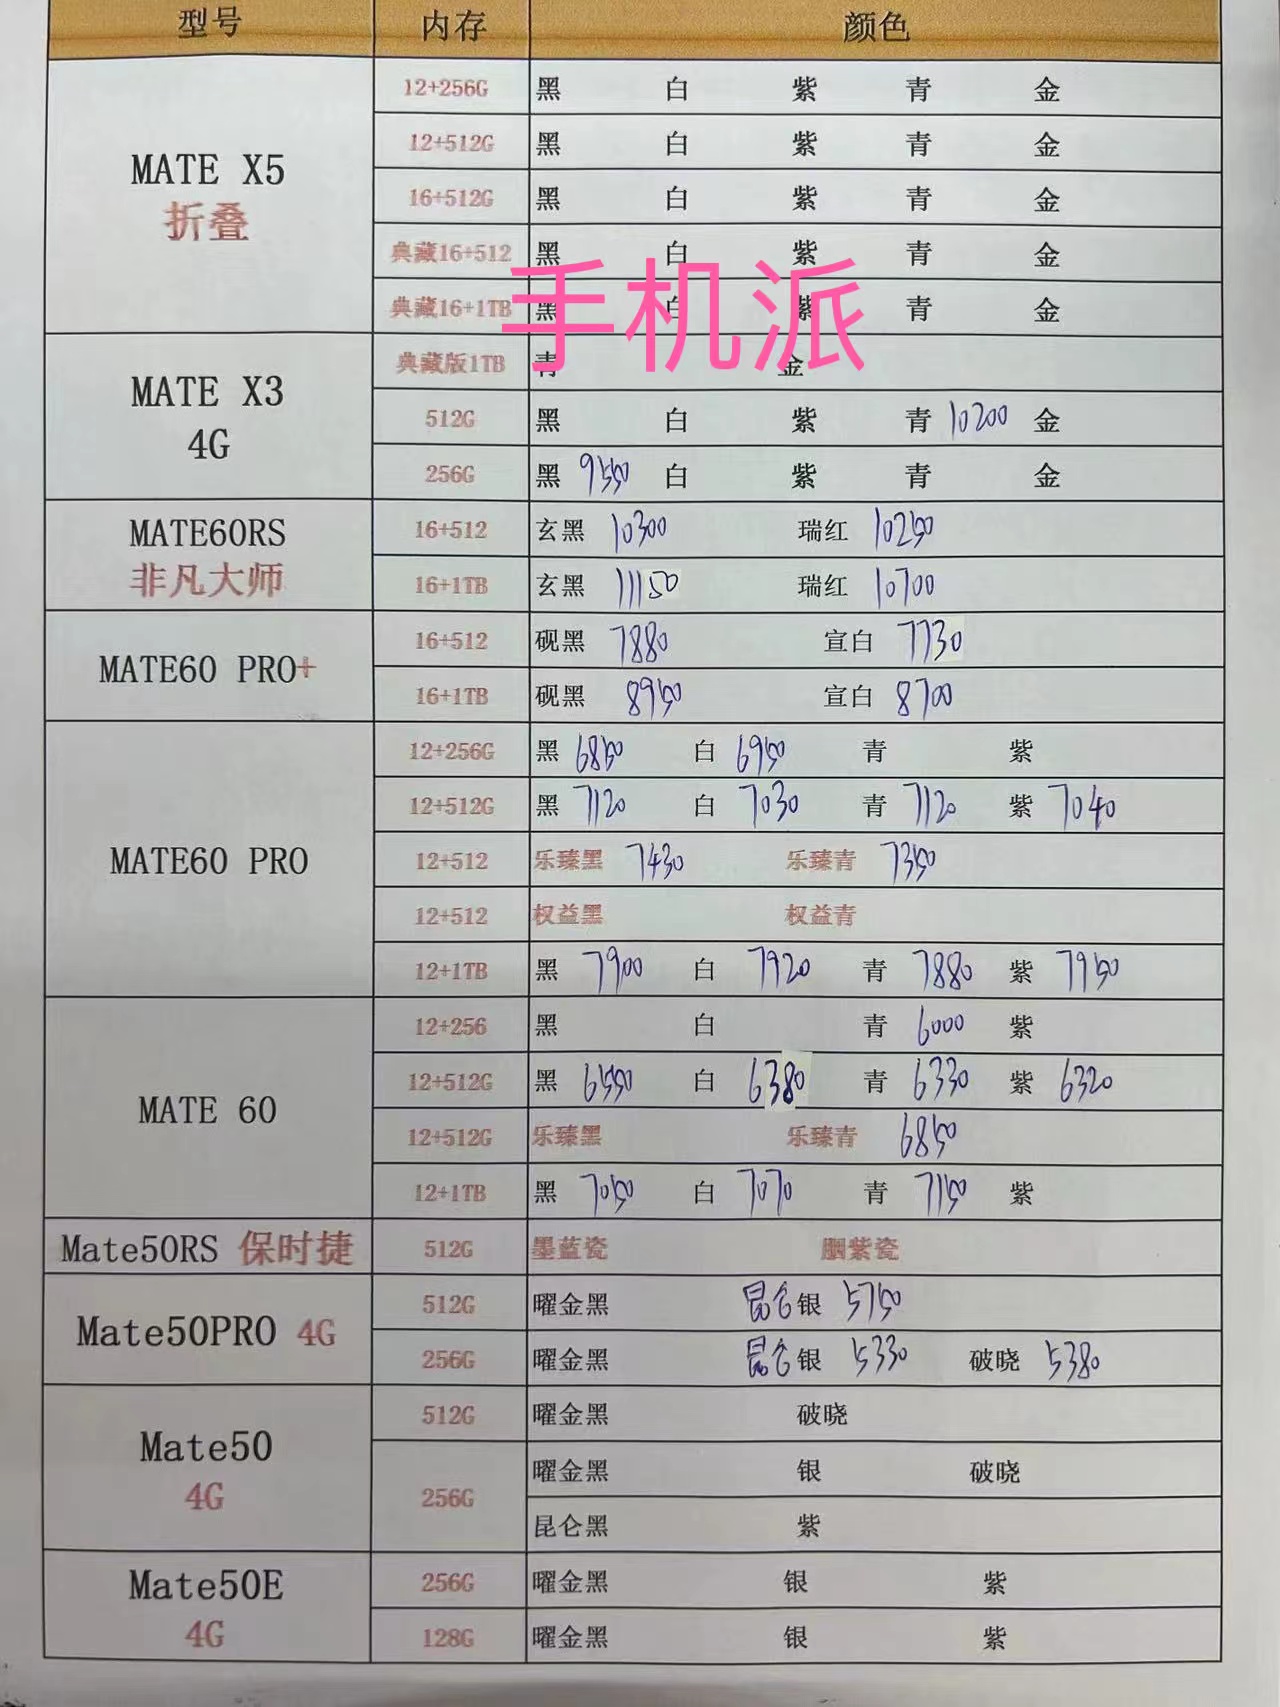 型号 内存 颜色
12+256G 黑 白 紫 青 金
12+512G 黑 白 紫 青 金
MATE X5
折叠
16+512G 黑 白 紫 青 金
典藏16+512 黑 白 紫 青 金
手机派
典藏16+1TB 黑 白 紫 青 金
典藏版1TB 青 金
MATE X3
4G
512G 黑 白 紫 青 10200 金
256G 黑 9550 白 紫 青 金
MATE60RS
非凡大师
16+512 玄黑 10300 瑞红 10250
16+1TB 玄黑 11150 瑞红 10700
MATE60 PRO+
16+512 砚黑 7880 宣白 7730
16+1TB 砚黑 8950 宣白 8700
12+256G 黑 6850 白 6950 青 紫
12+512G 黑 7120 白 7030 青 7120 紫 7040
MATE60 PRO
12+512 乐臻黑 7430 乐臻青 7350
12+512 权益黑 权益青
12+1TB 黑 7900 白 7920 青 7880 紫 7950
12+256 黑 白 青 6000 紫
12+512G 黑 6550 白 6380 青 6330 紫 6320
MATE 60
12+512G 乐臻黑 乐臻青 6850
12+1TB 黑 7050 白 7070 青 7150 紫
Mate50RS 保时捷 512G 墨蓝瓷 胭紫瓷
Mate50PRO 4G
512G 曜金黑 昆仑银 5750
256G 曜金黑 昆仑银 5330 破晓 5380
Mate50
4G
512G 曜金黑 破晓
256G 曜金黑 银 破晓
昆仑黑 紫
Mate50E
4G
256G 曜金黑 银 紫
128G 曜金黑 银 紫